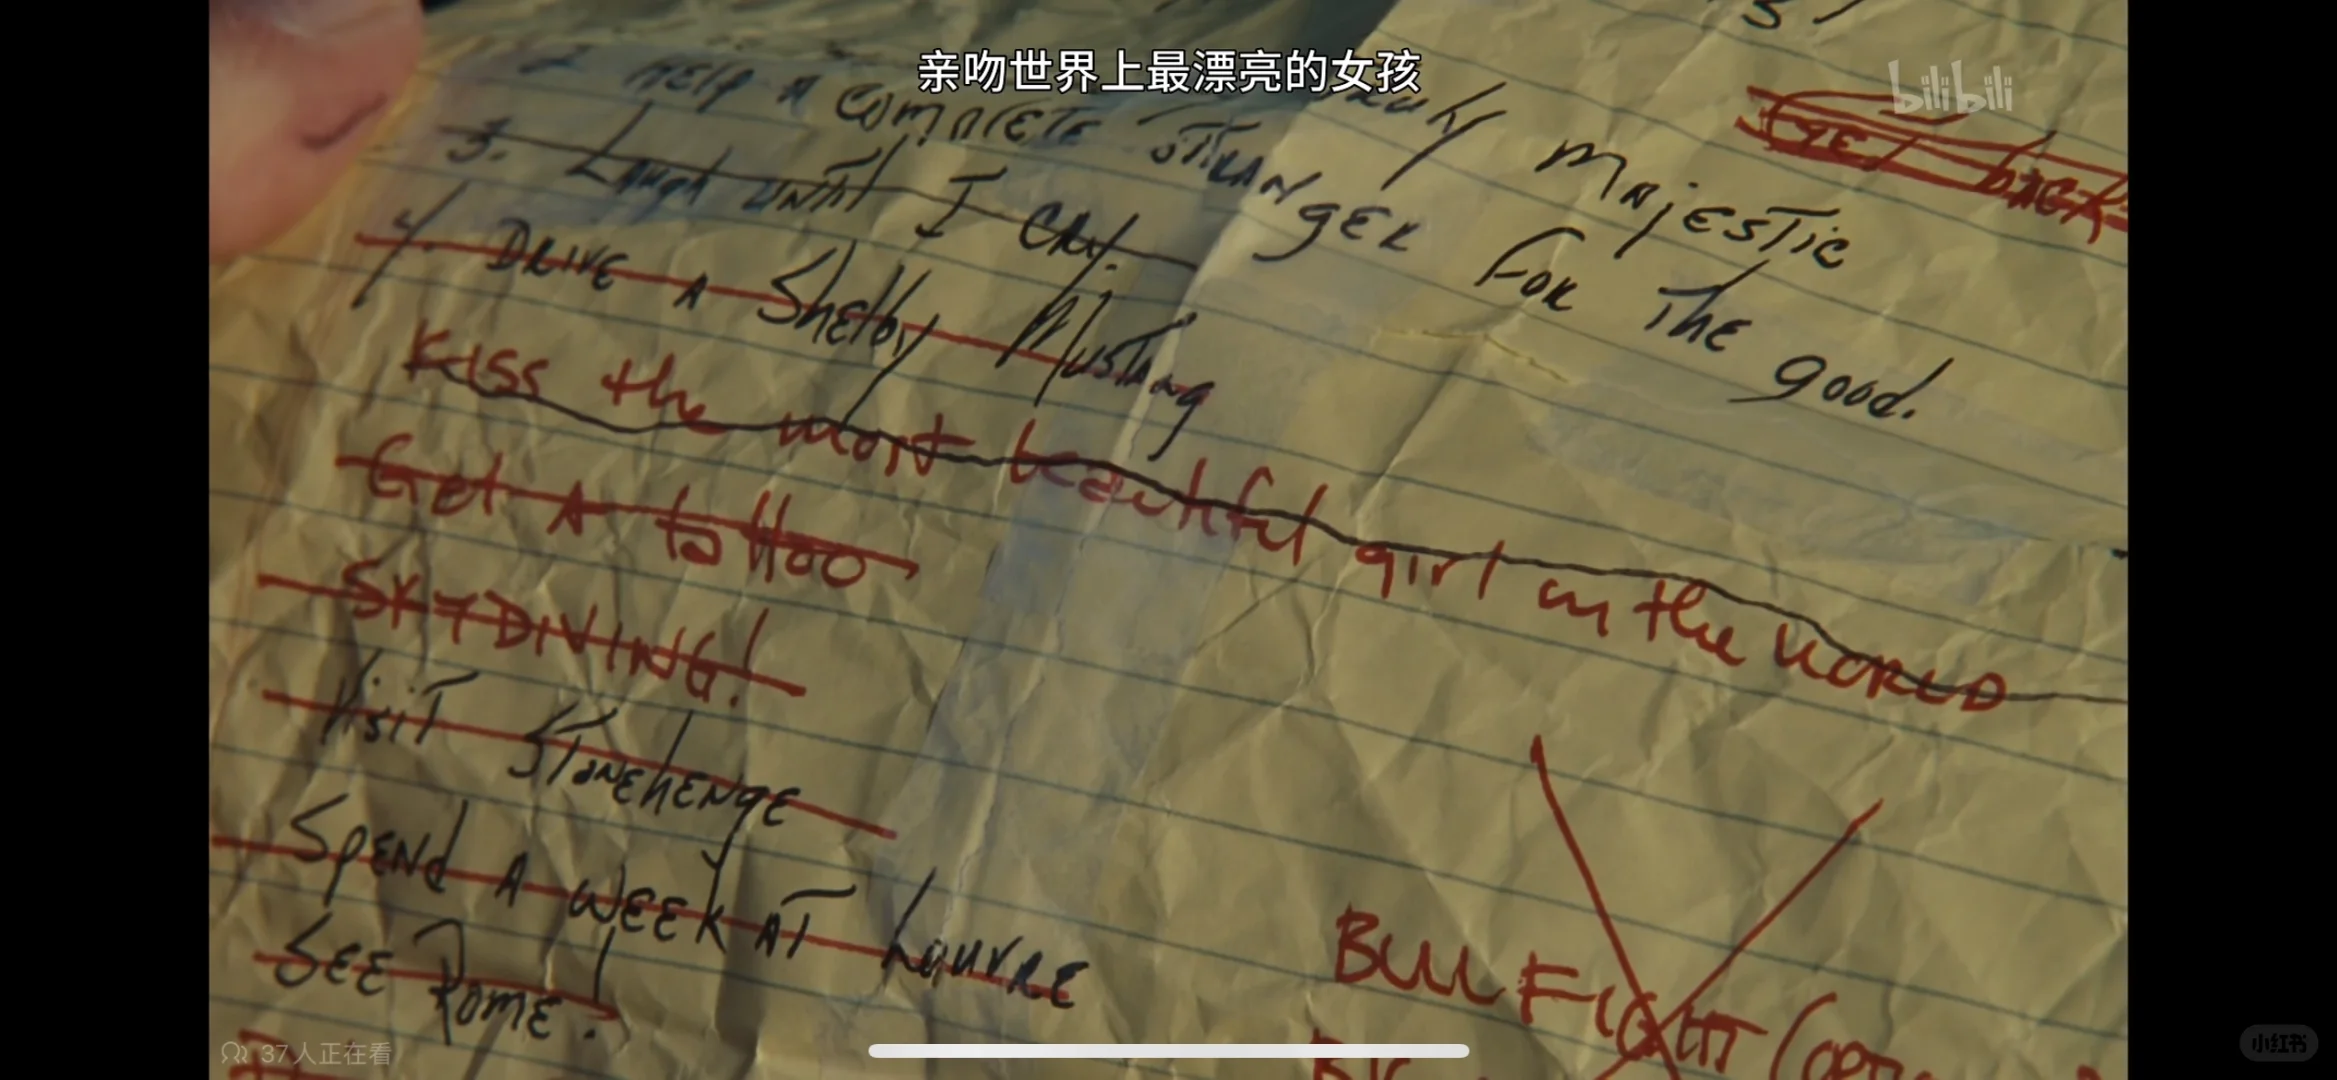 亲吻世界上最漂亮的女孩
bilibili
majestic
2. Help a complete stranger for the good.
3. Laugh until I cry.
4. Drive a Shelby Mustang
Kiss the most beautiful girl in the WORLD
Get A tattoo
SKYDIVING!
Visit Stonehenge
Spend A week at Louvre
See Rome!
Get back
BULLFIGHT (OPTI
37人正在看
小红书